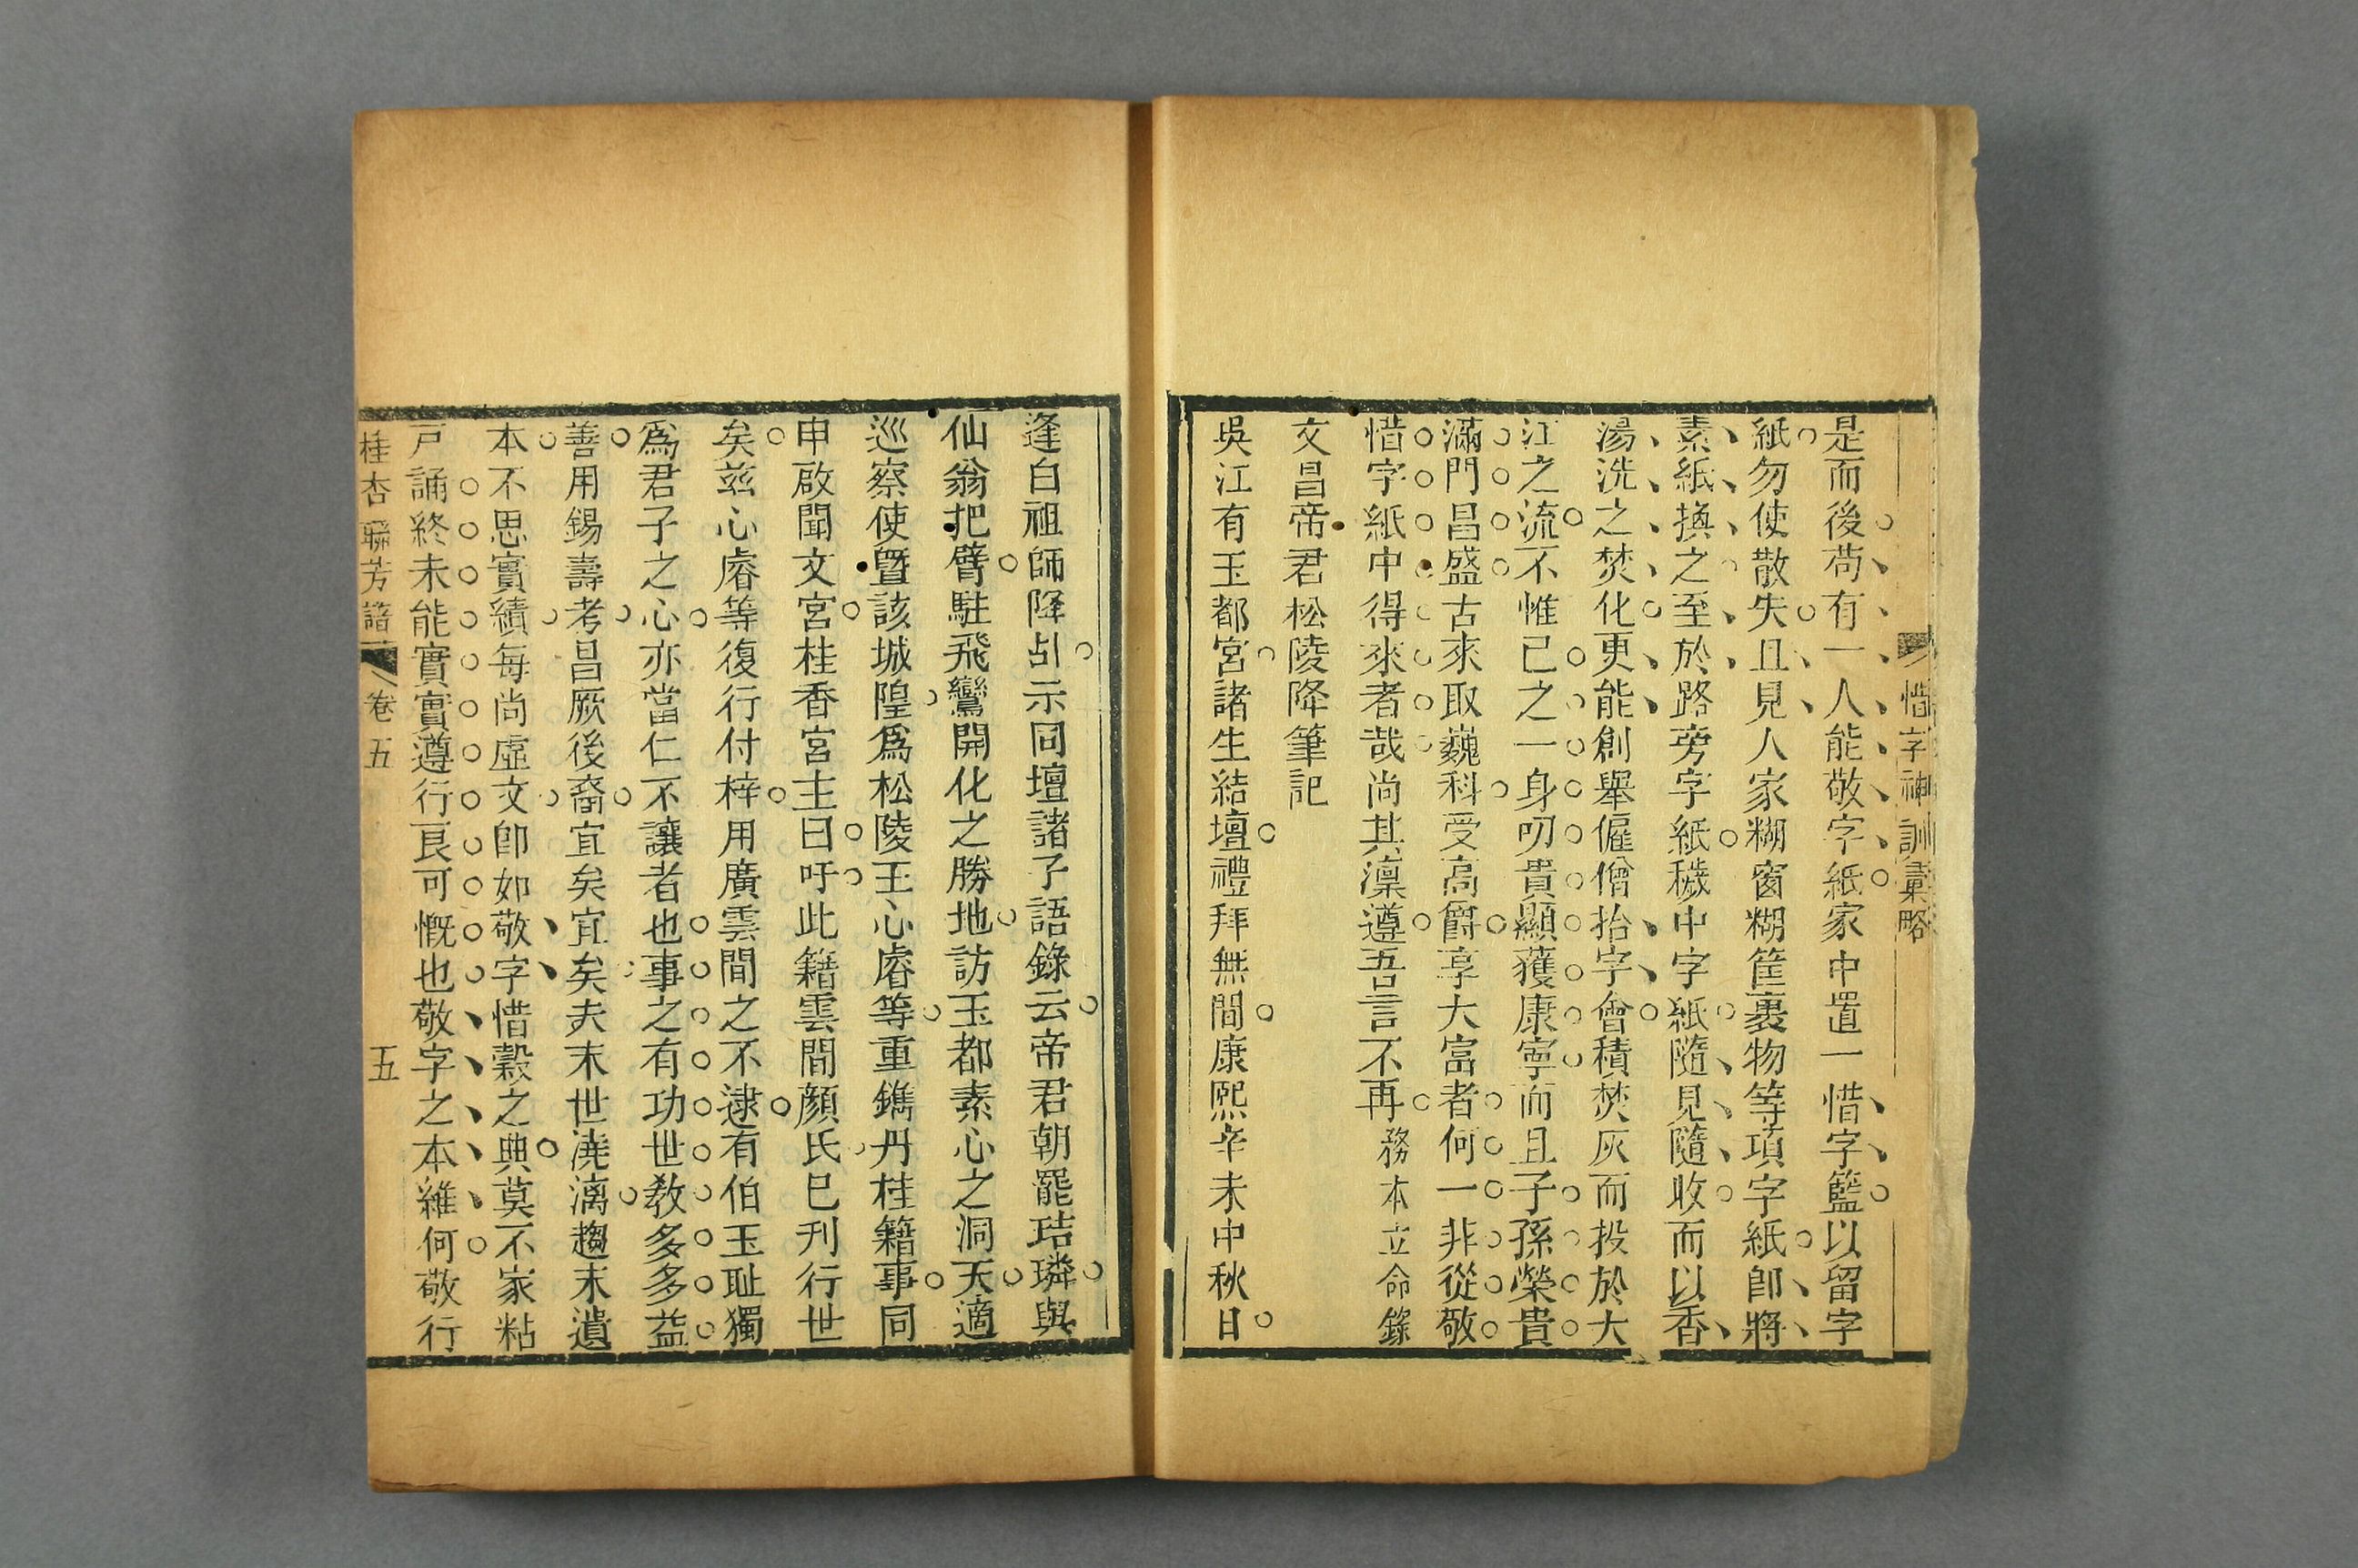 惜字神訓彙略
是而後苟有一人能敬字紙家中置一惜字籃以留字
紙勿使散失且見人家糊窗糊筐裹物等項字紙卽將
素紙換之至於路旁字紙穢中字紙隨見隨收而以香
湯洗之焚化更能創舉僱僧拾字會積焚灰而投於大
江之流不惟己之一身叨貴顯獲康寧而且子孫榮貴
滿門昌盛古來取巍科受高爵享大富者何一非從敬
惜字紙中得來者哉尚其凜遵吾言不再務本立命錄
文昌帝君松陵降筆記
吳江有玉都宮諸生結壇禮拜無間康熙辛未中秋日
逢白祖師降乩示同壇諸子語錄云帝君朝罷結璘與
仙翁把臂駐飛鸞開化之勝地訪玉都素心之洞天適
巡察使曁該城隍爲松陵王心睿等重鐫丹桂籍事同
申啟聞文宮桂香宮主曰吁此籍雲間顏氏巳刊行世
矣茲心睿等復行付梓用廣雲間之不逮有伯玉耻獨
爲君子之心亦當仁不讓者也事之有功世教多多益
善用錫壽考昌厥後裔宜矣宜矣夫末世澆漓趨末遺
本不思實績每尚虛文卽如敬字惜穀之典莫不家粘
戸誦終未能實實遵行良可慨也敬字之本維何敬行
桂杏聯芳譜 卷五 五